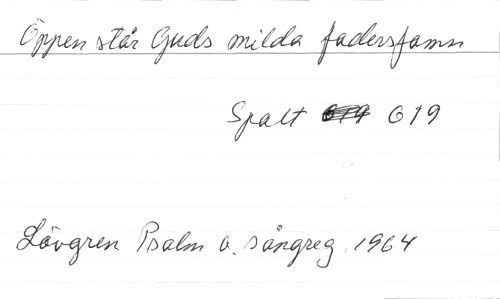 Öppen står Guds milda fadersfamn
Spalt 619
Lövgren Psalm o. sångreg. 1964